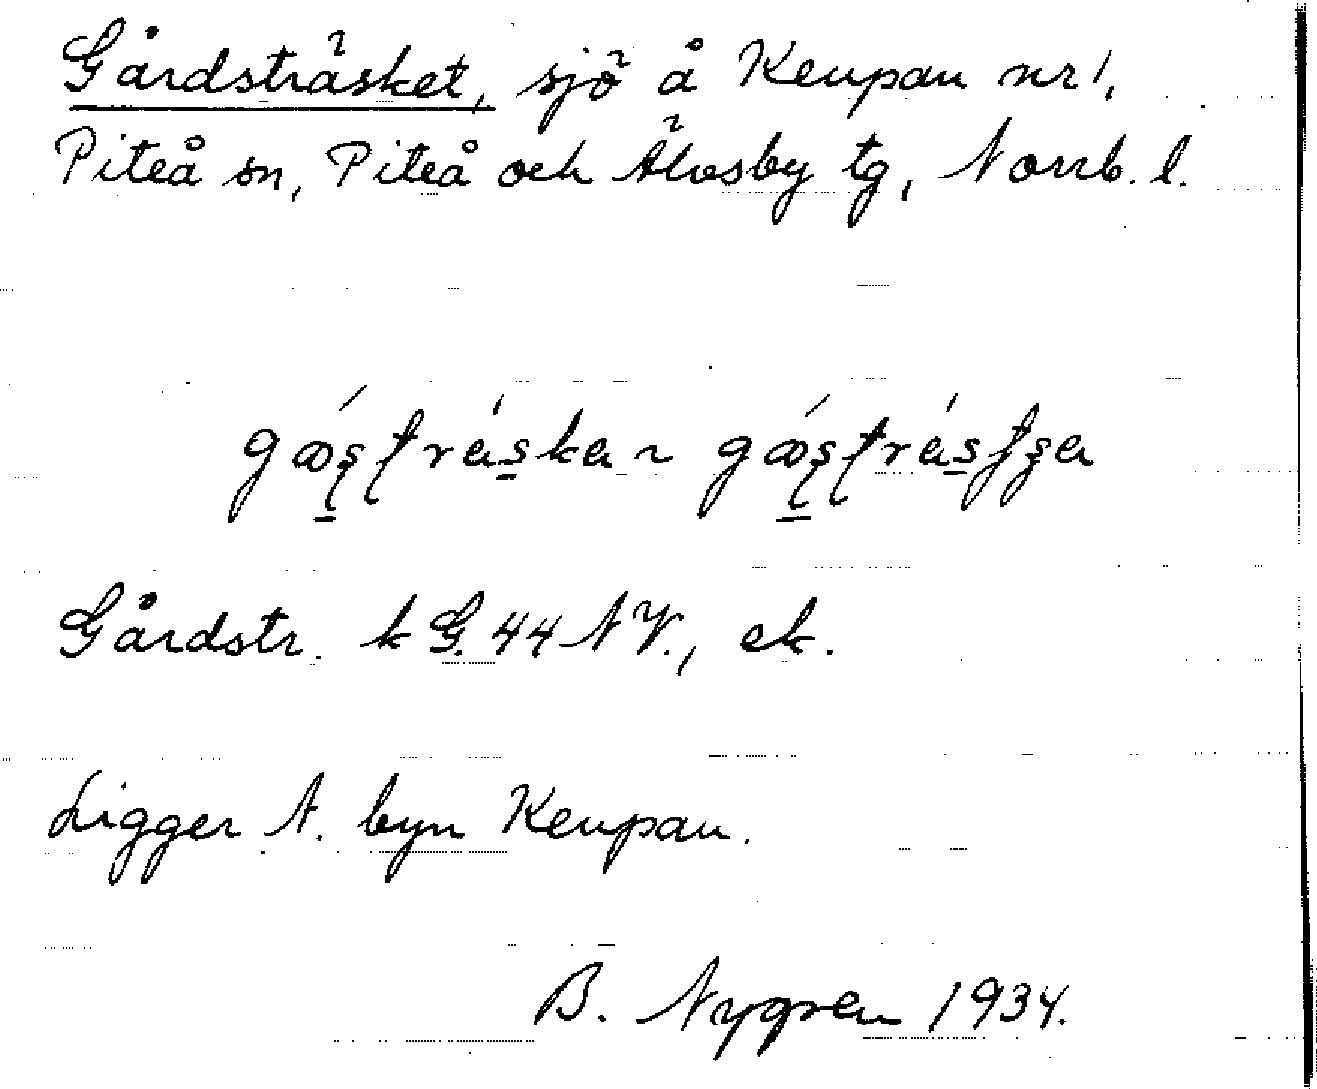 Gårdsträsket, sjö å Keupan nr 1,
Piteå sn, Piteå och Älvsby tg, Norrb. l.
Gårdstr. k G. 44 NV., ek.
Ligger N. byn Keupan.
B. Nygren 1934.